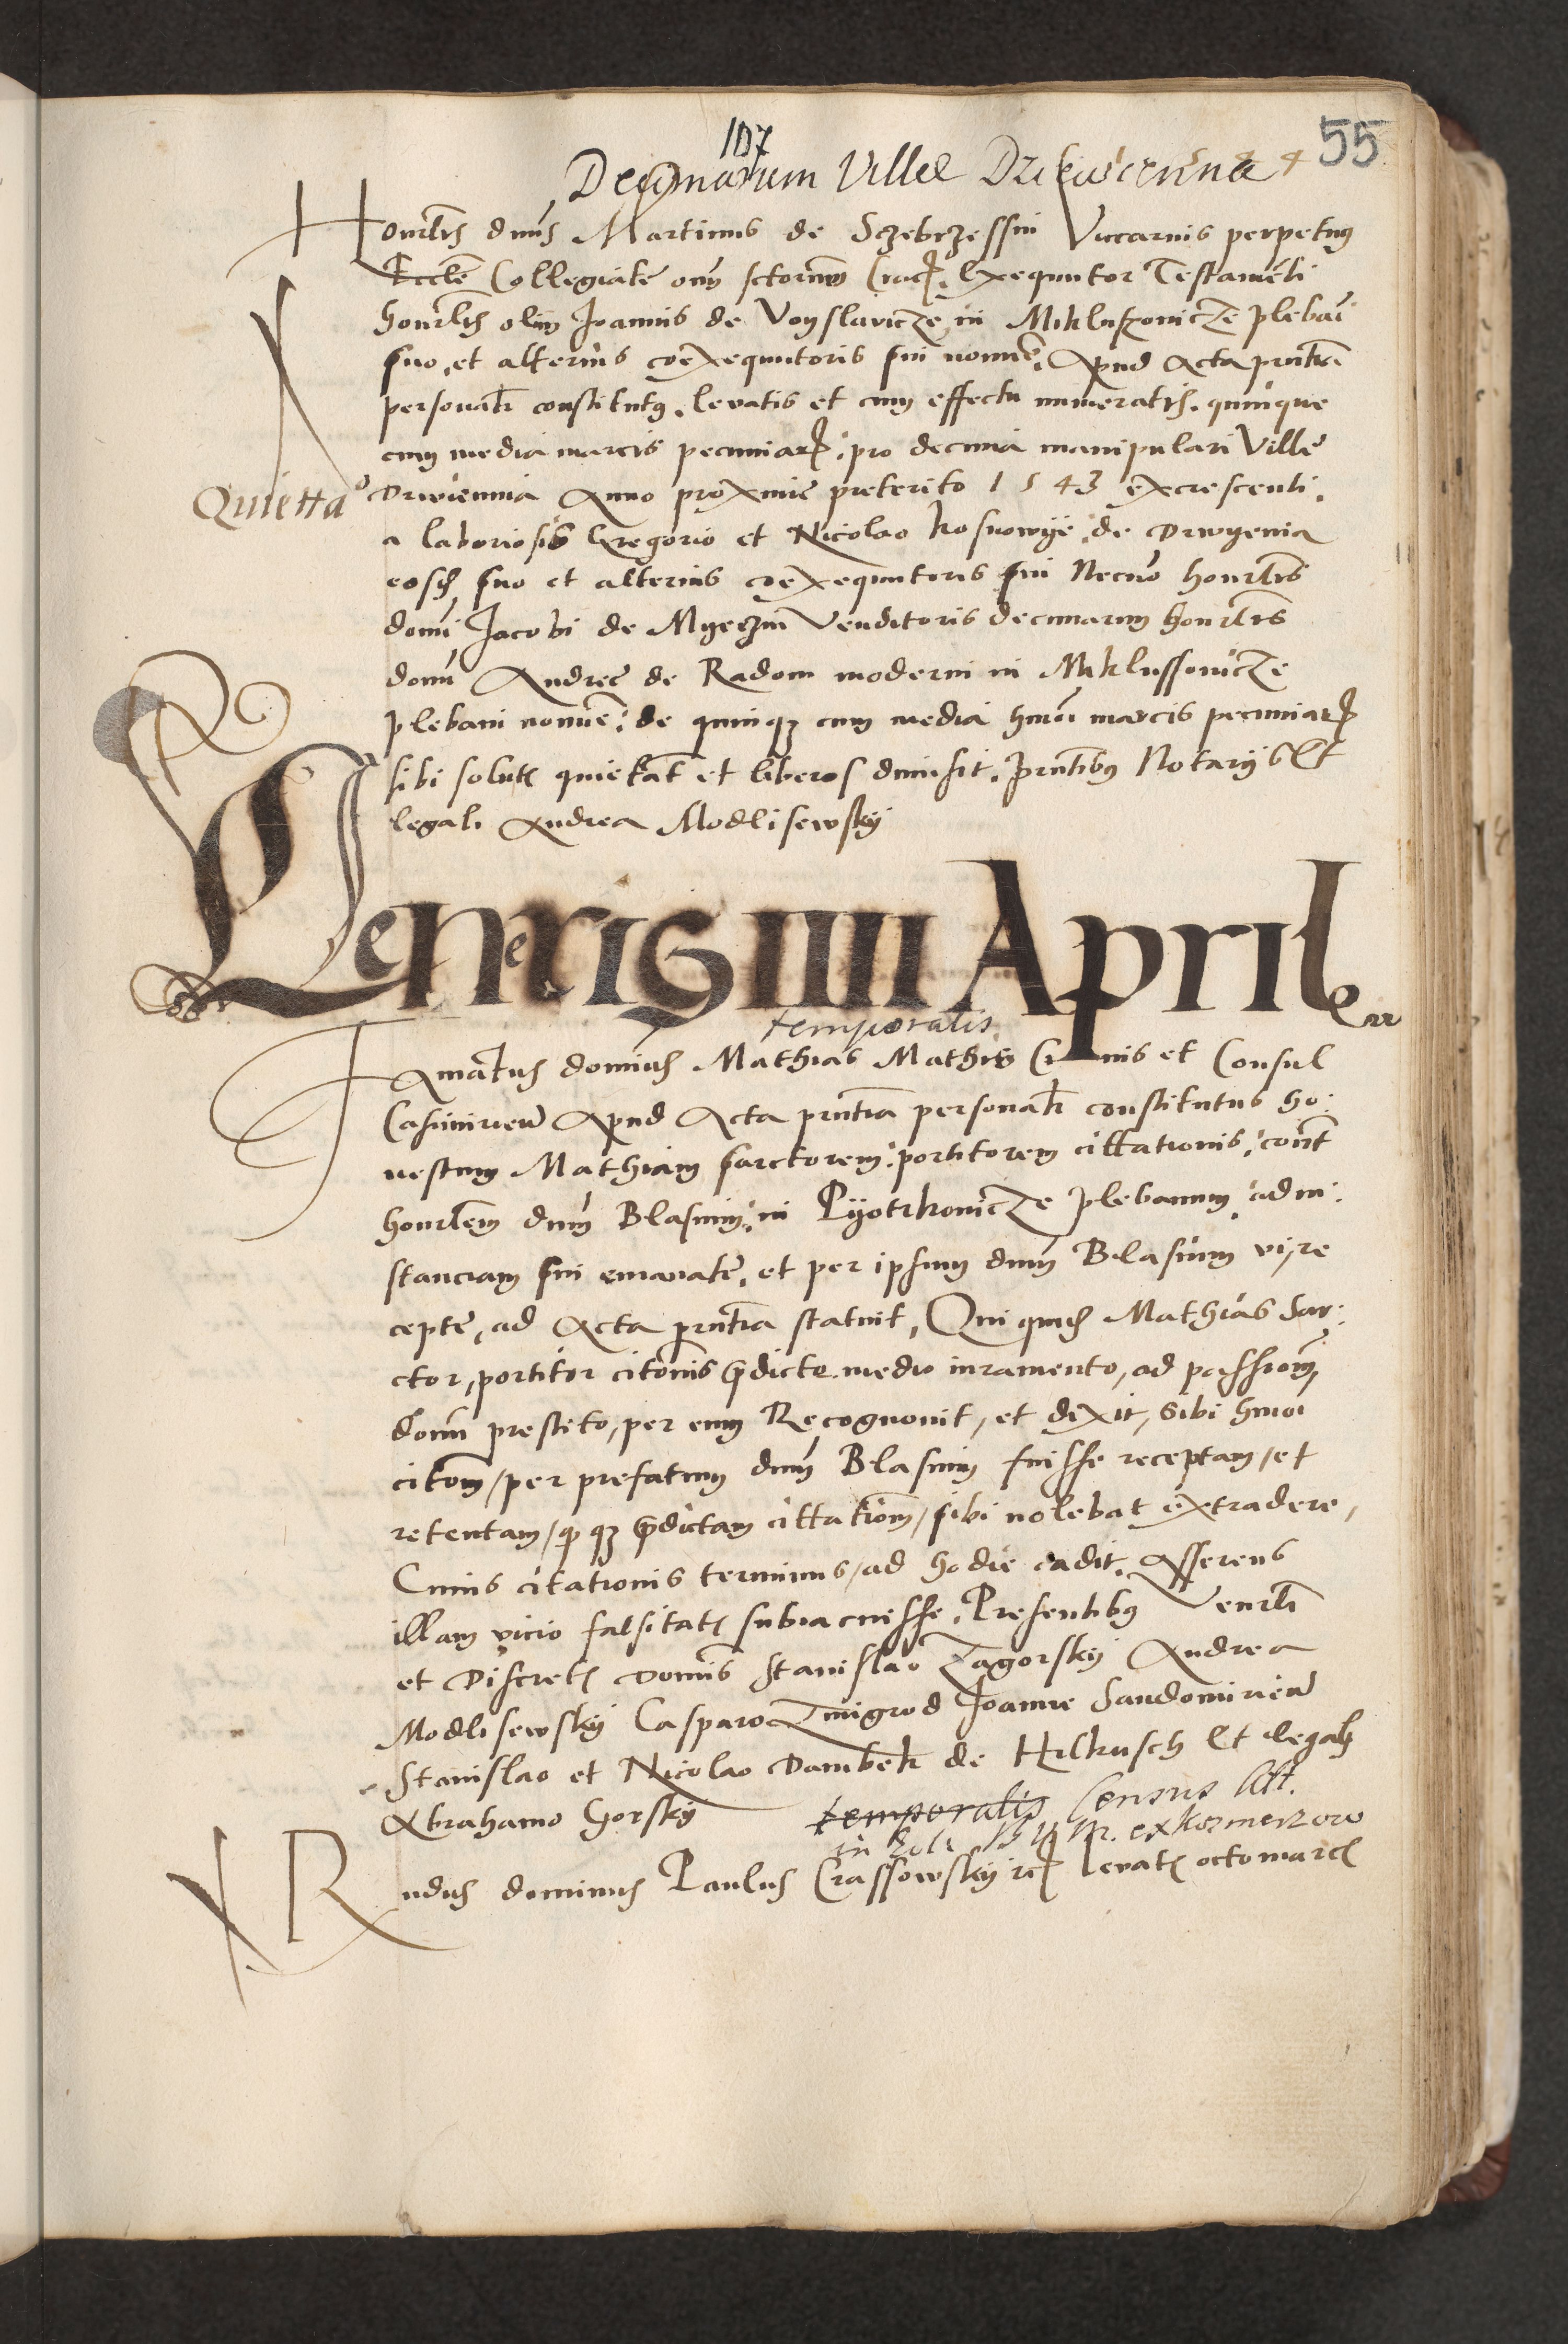 107
55
Decimarum Villae Drwienna
Honorlis dnus Martinus de Sczebrzessin Viccarius perpetuus
Eccle Collegiate oim sctorum Crac. Exequutor Testamenti
honorlis olim Joannis de Voyslavicze in Mikluszovicze plebani
suo, et alterius coexequutoris sui nomine. Apud Acta pnti
personalr constitutus. levatis et cum effectu numeratis. quinque
cum media marcis pecuniar. pro decima manipulari Ville
Quietta
Drwiennia Anno proxime preterito 1543 excrescenti.
a laboriosis Gregorio et Nicolao Kosnowye de Drwyenia
eosd suo et alterius coexequutoris sui Necno honorlis
domi Jacobi de Myeczin Venditoris decimarum honorlis
domi Andree de Radom moderni in Miklussovicze
plebani nomine: de quinqz cum media hmoi marcis pecuniar
sibi solutis quietat et liberos dimisit. pntibus Notarijs et
legali Andrea Modlisewsky
Veneris IIII Aprilis
temporalis
Famatus dominus Mathias Mathis Civis et Consul
Casimirien Apud Acta pntia personalr constitutus ho:
nestum Mathiam sarctorem: portitorem cittationis, cont
honorlem dnum Blasium: in Pyotrkovicze plebanum, ad in:
stanciam sui emanate, et per ipsum dnum Blasium vi, re
cepte, ad Acta pntia statuit, Qui quid Mathias Sar:
ctor, portitor citonis pdicte medio iuramento, ad passiom
domi prestito, per eum Recognovit, et dixit, sibi hmoi
citom, per prefatum dnum Blasium fuisse receptam, et
retentam, qz pdictam cittationem, sibi nolebat extradere,
Cuius citationis terminus, ad hodie cadit. Asserens
illam vicio falsitatis subiacuisse. Presentibus Venerli
et Discretis Dominis Stanislao Zagorsky Andrea
Modlisewsky Casparo Zmigrod Joanne Sandomirien
Stanislao et Nicolao Dambek de Hilkusch et legali
Abrahamo Gorsky
temporalis Census
Rndus dominus Paulus Crassowsky levatis octo marcis